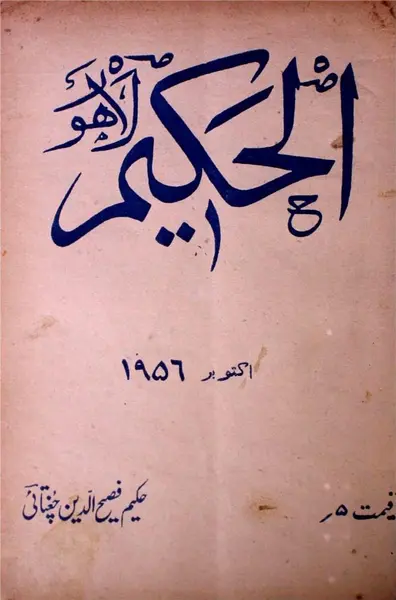 الحکیم
لاہور
اکتوبر ۱۹۵۶
قیمت ۵؍
حکیم فصیح الدین چغتائی